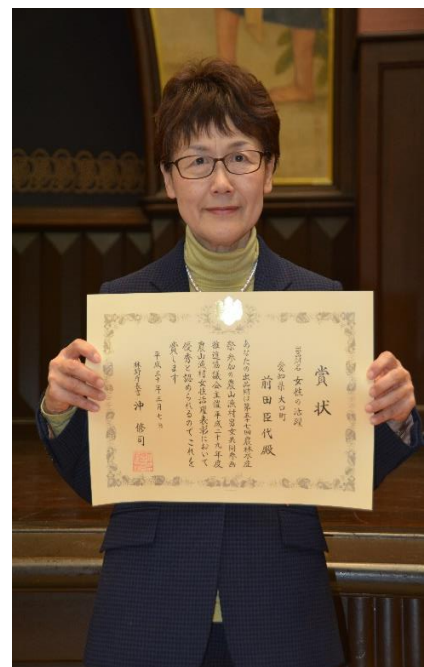 賞状
出品財名 女性の活躍
愛知県大口町
前田臣代殿
あなたの出品財は第五十七回農林水産
祭参加の農山漁村男女共同参画
推進協議会主催平成二十九年度
農山漁村女性活躍表彰において
優秀と認められるのでこれを
賞します
平成三十年三月七日
林野庁長官 沖修司